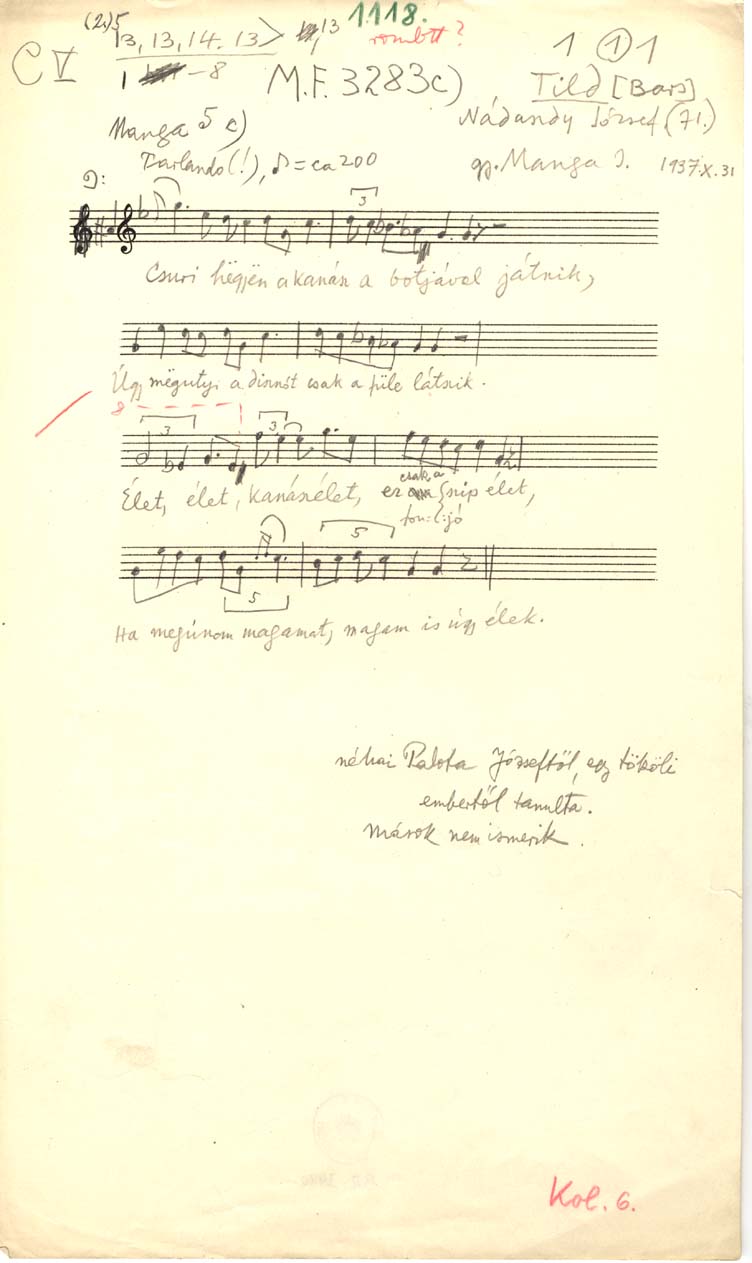 (2.)5 1118.
13, 13, 14. 13> 13 romlott?
C V 1 - 8 M.F. 3283c) 1 1 1
Tild [Bars]
Manga 5 c) Nádasdy József (71.)
Parlando(!), ♪ = ca 200 gy. Manga J. 1937.X.31
D:
3
Csuri hëgjën a kanász a botjával játszik,
Úgy mëgutyi a disznót csak a füle látszik.
8
3 3
Élet, élet, kanászélet, ez csak a szép élet,
fon: l:jó
5
5
Ha megúnom magamat, magam is úgy élek.
néhai Palota Józseftől, egy tököli
embertől tanulta.
Mások nem ismerik.
Kol. 6.